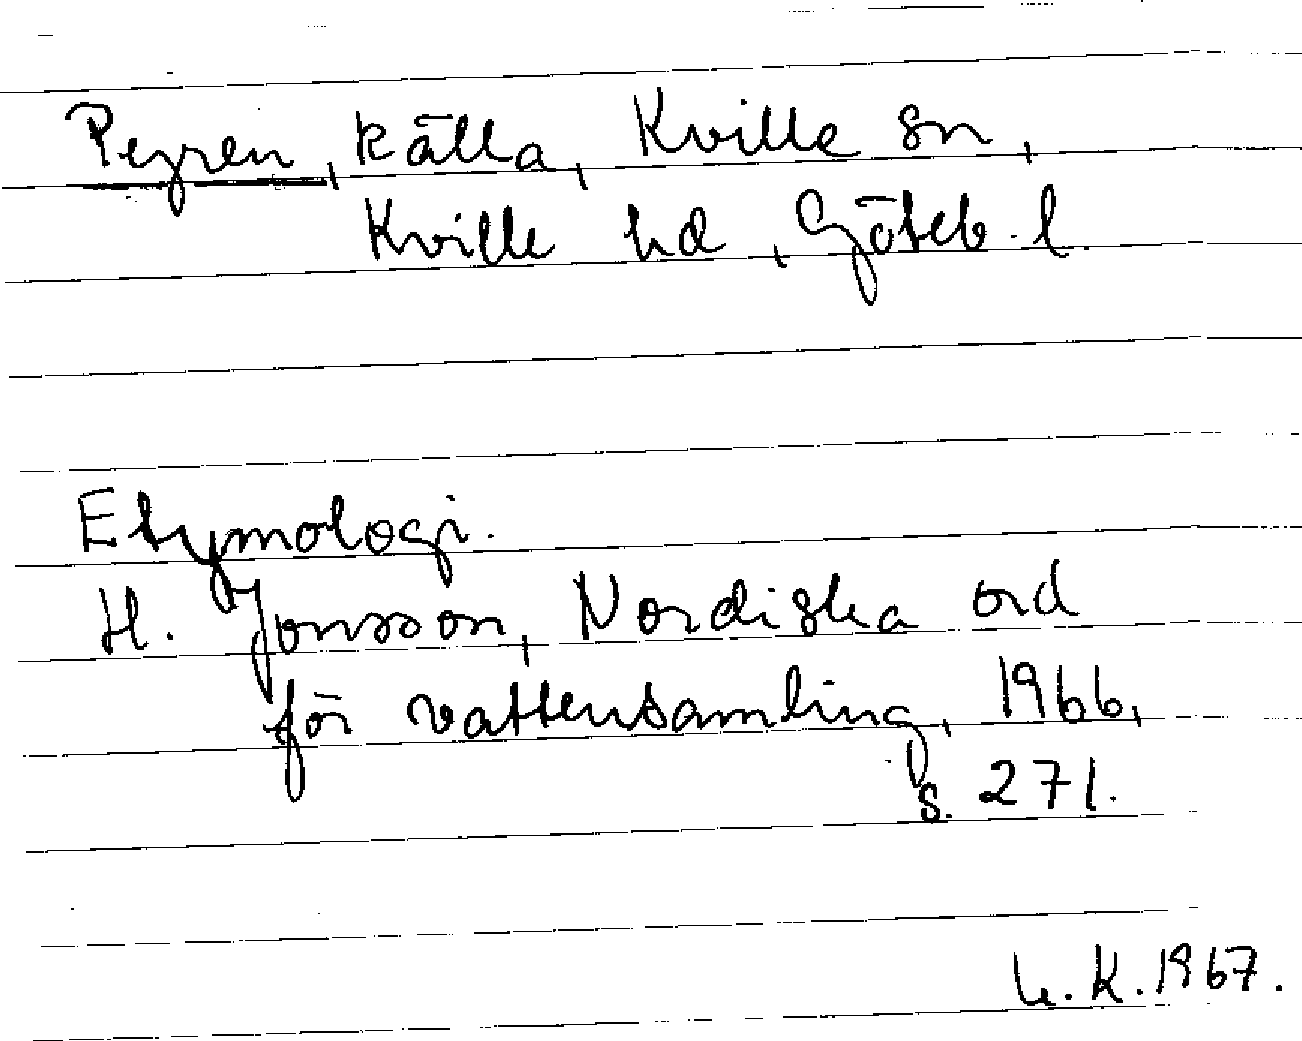 Pejren, källa, Kville sn,
Kville hd, Göteb. l.
Etymologi.
H. Jonsson, Nordiska ord
för vattensamling, 1966,
s. 271.
K. 1967.